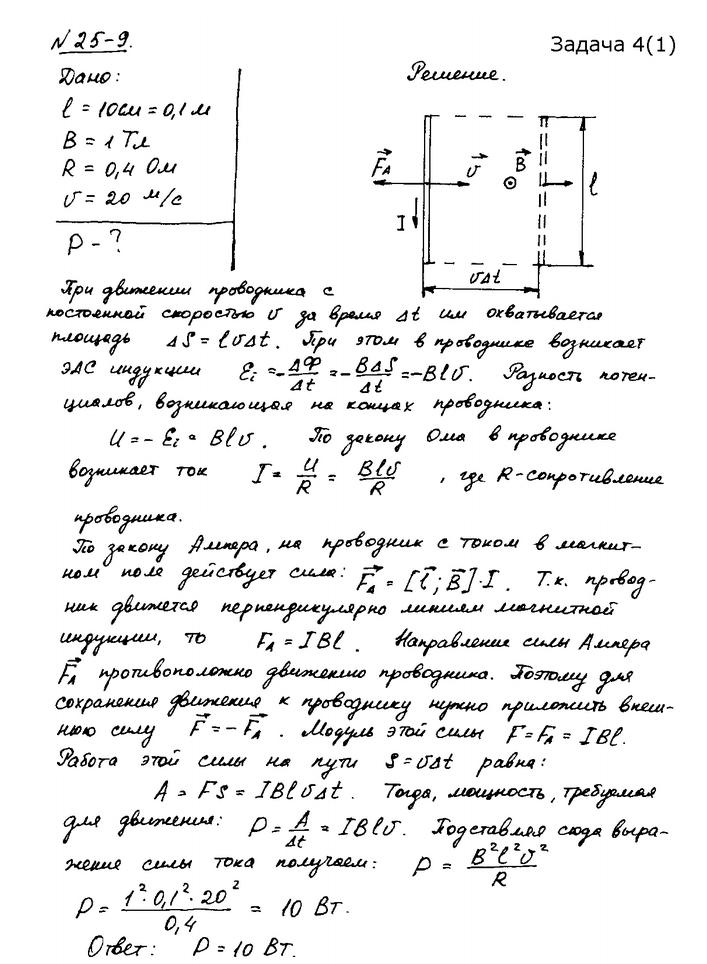 N 25-9.
Задача 4(1)
Дано:
l = 10см = 0,1 м
B = 1 Тл
R = 0,4 Ом
υ = 20 м/с
P - ?
Решение.
F⃗_A υ⃗ B⃗
I l
υΔt
При движении проводника с
постоянной скоростью υ за время Δt им охватывается
площадь ΔS = lυΔt. При этом в проводнике возникает
ЭДС индукции Ei = -ΔФ/Δt = -BΔS/Δt = -Blυ. Разность потен-
циалов, возникающая на концах проводника:
U = - Ei = Blυ. По закону Ома в проводнике
возникает ток I = U/R = Blυ/R , где R-сопротивление
проводника.
По закону Ампера, на проводник с током в магнит-
ном поле действует сила: F⃗_A = [l⃗; B⃗]·I. Т.к. провод-
ник движется перпендикулярно линиям магнитной
индукции, то F_A = IBl. Направление силы Ампера
F⃗_A противоположно движению проводника. Поэтому для
сохранения движения к проводнику нужно приложить внеш-
нюю силу F⃗ = -F⃗_A. Модуль этой силы F = F_A = IBl.
Работа этой силы на пути S = υΔt равна:
A = FS = IBlυΔt. Тогда, мощность, требуемая
для движения: P = A/Δt = IBlυ. Подставляя сюда выра-
жение силы тока получаем: P = B²l²υ²/R
P = 1²·0,1²·20²/0,4 = 10 Вт.
Ответ: P = 10 Вт.